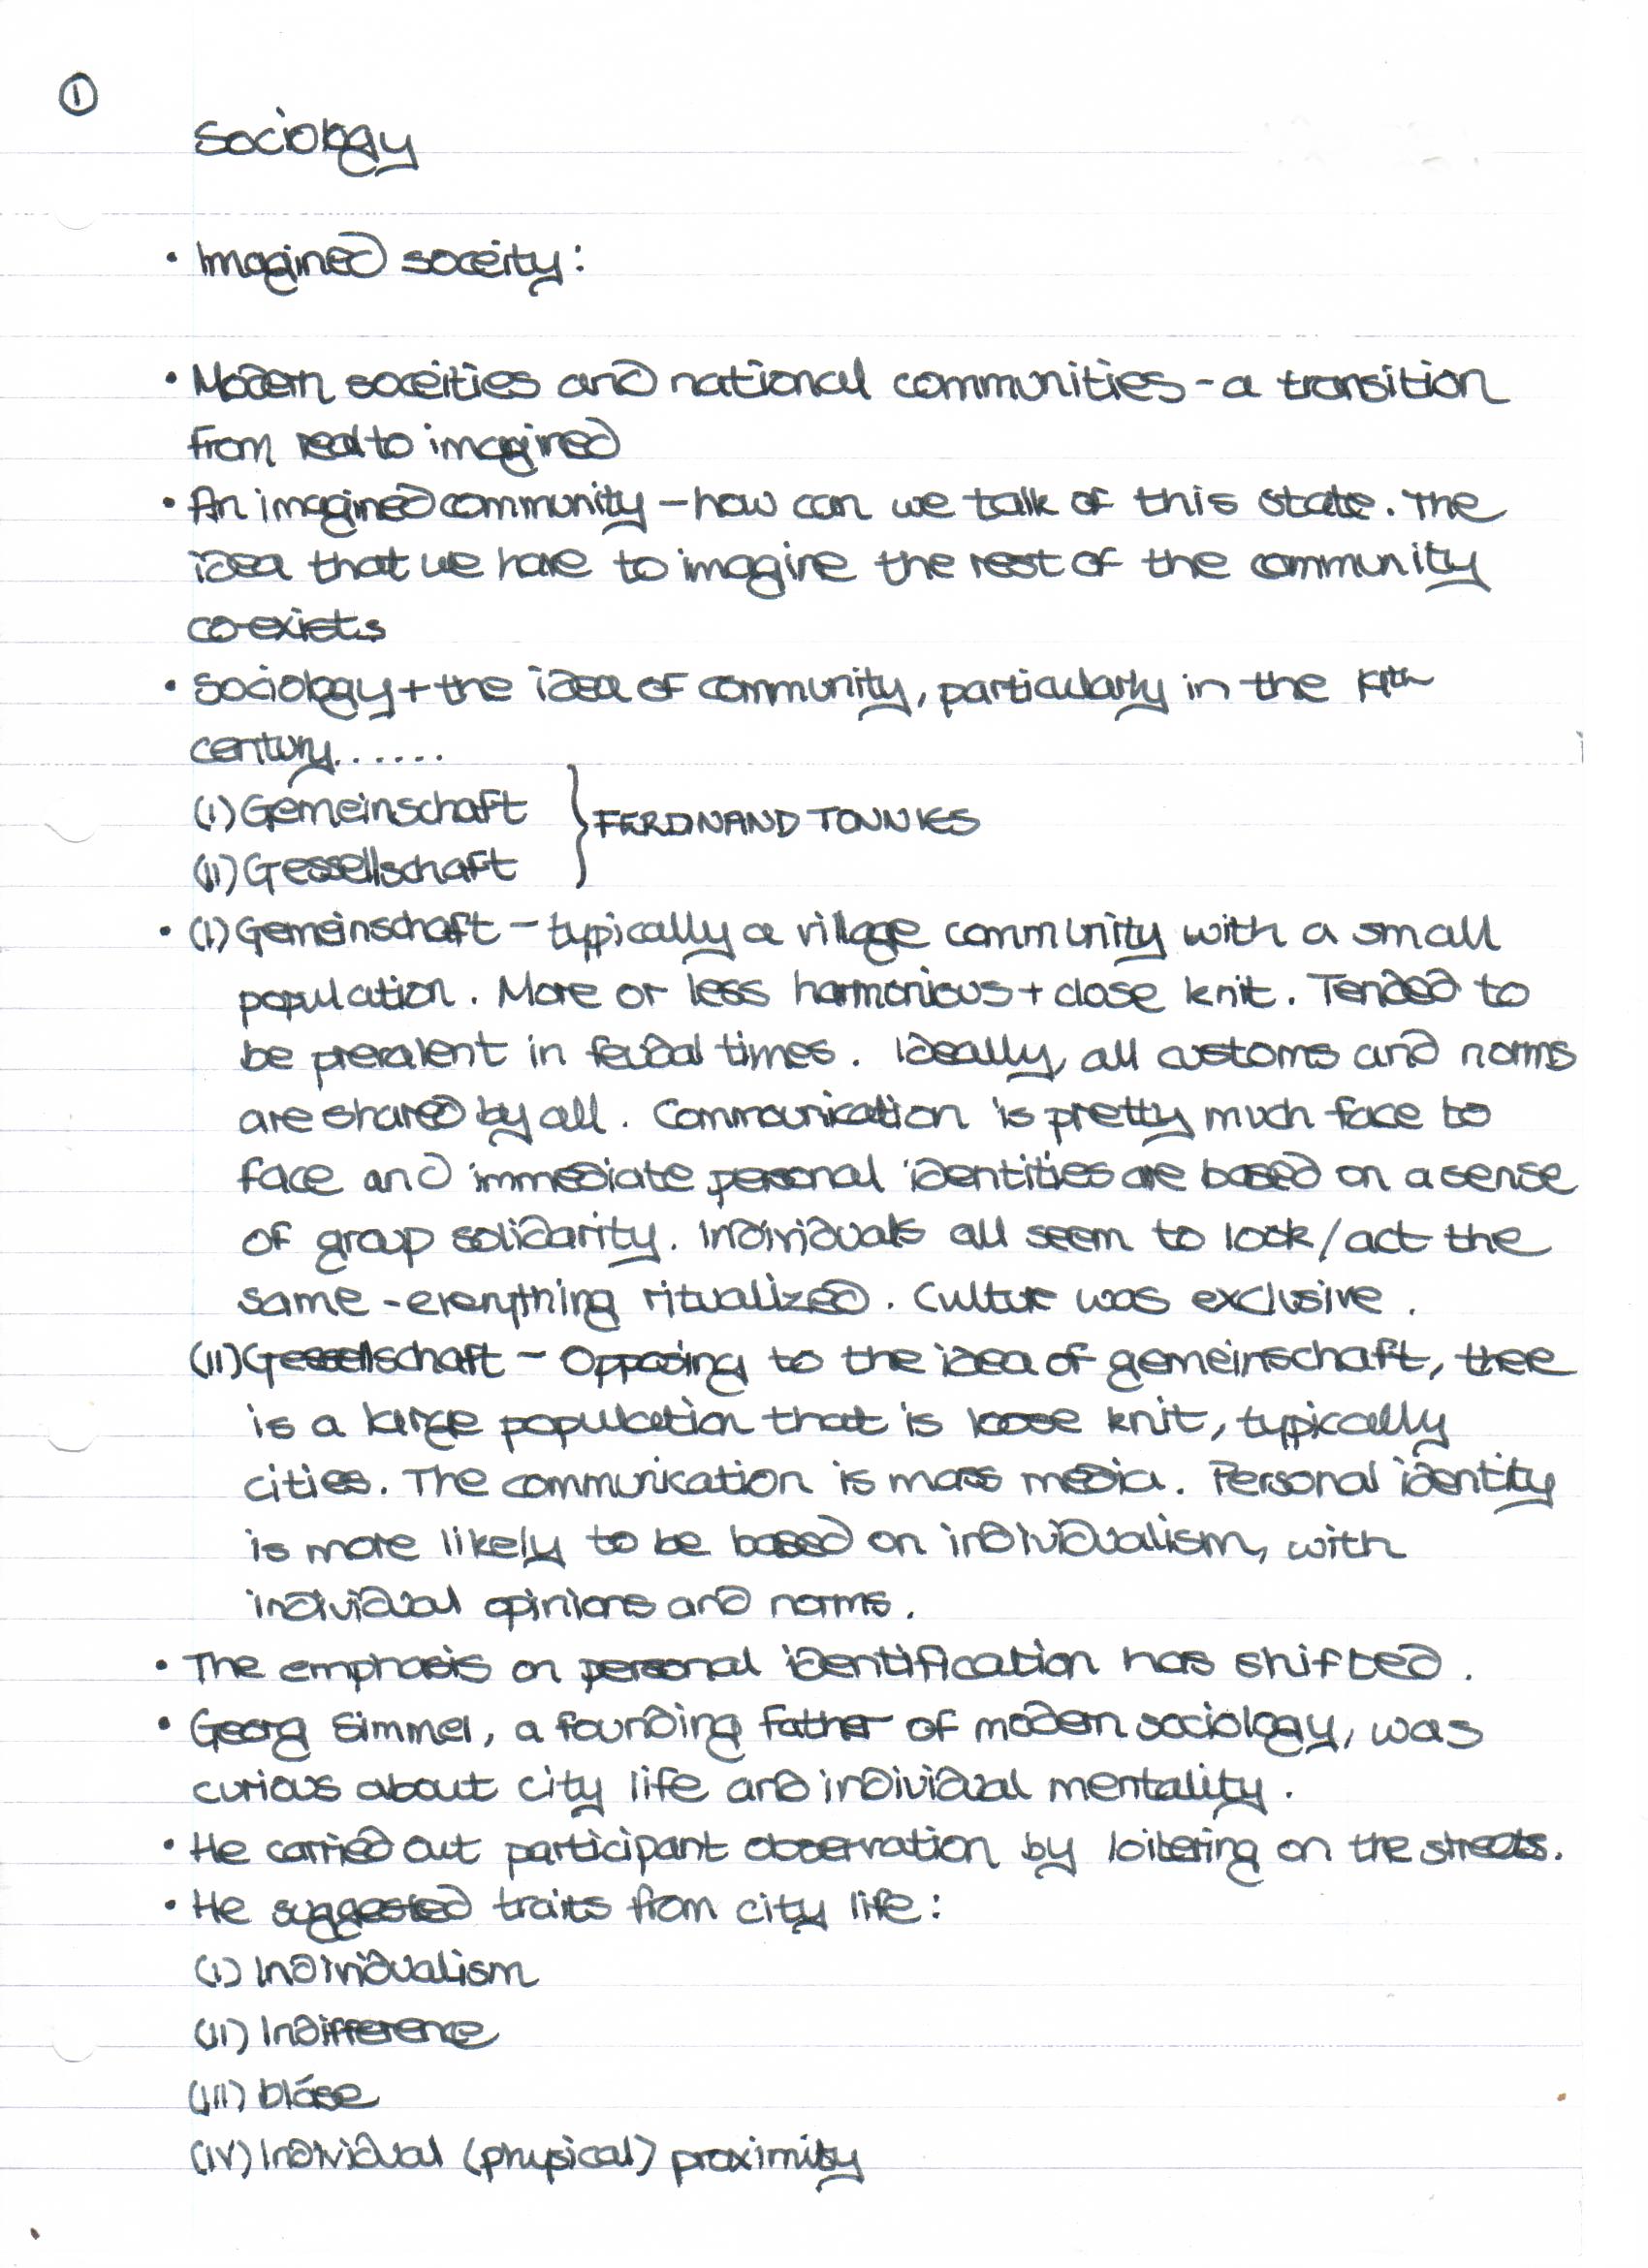 ①
Sociology
• Imagined soceity:
• Modern soceities and national communities - a transition
from real to imagined
• An imagined community - how can we talk of this state. The
idea that we have to imagine the rest of the community
co-exists
• Sociology + the idea of community, particularly in the
century......
(i) Gemeinschaft
(ii) Gessellschaft
} FERDINAND TONNIES
• (i) Gemeinschaft - typically a village community with a small
population. More or less harmonious + close knit. Tended to
be prevalent in feudal times. Ideally, all customs and norms
are shared by all. Communication is pretty much face to
face and immediate personal identities are based on a sense
of group solidarity. Individuals all seem to look/act the
same - everything ritualized. Culture was exclusive.
(ii) Gessellschaft - Opposing to the idea of gemeinschaft, there
is a large population that is loose knit, typically
cities. The communication is mass media. Personal identity
is more likely to be based on individualism, with
individual opinions and norms.
• The emphasis on personal identification has shifted.
• Georg Simmel, a founding father of modern sociology, was
curious about city life and individual mentality.
• He carried out participant observation by loitering on the streets.
• He suggested traits from city life:
(i) Individualism
(ii) Indifference
(iii) bláse
(iv) Individual (physical) proximity